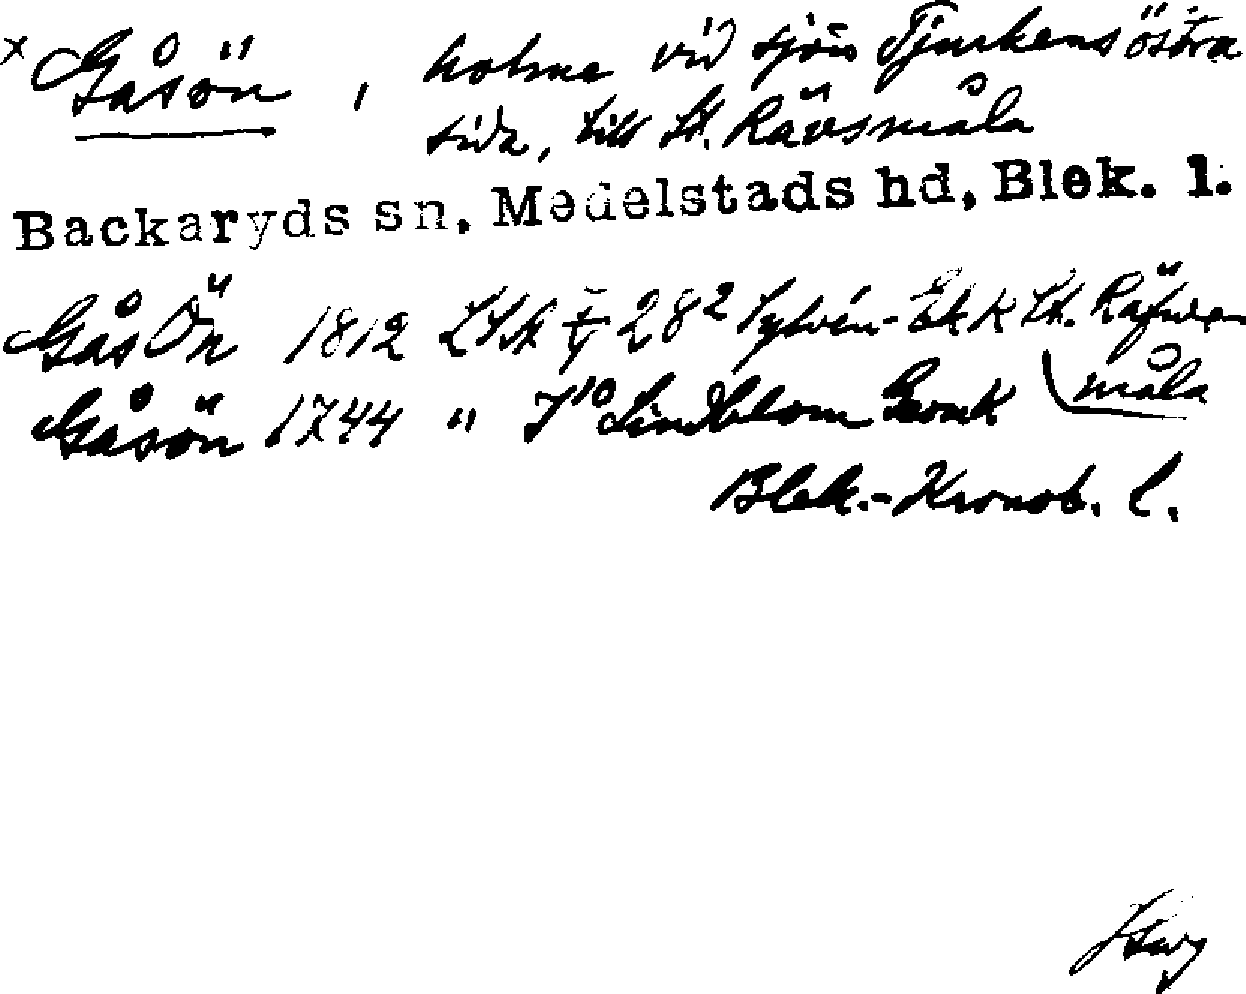 x Gåsön, holme vid sjön Tjurkens östra
sida, till St. Rävsmåla
Backaryds sn, Medelstads hd, Blek. l.
GåsÖn 1812 LSA 28² Sylvén- Ek K St. Räfwe-
måla
Gåsön 1744 " 7¹⁰ Lindblom Grönk
Blek.-Kronob. l.